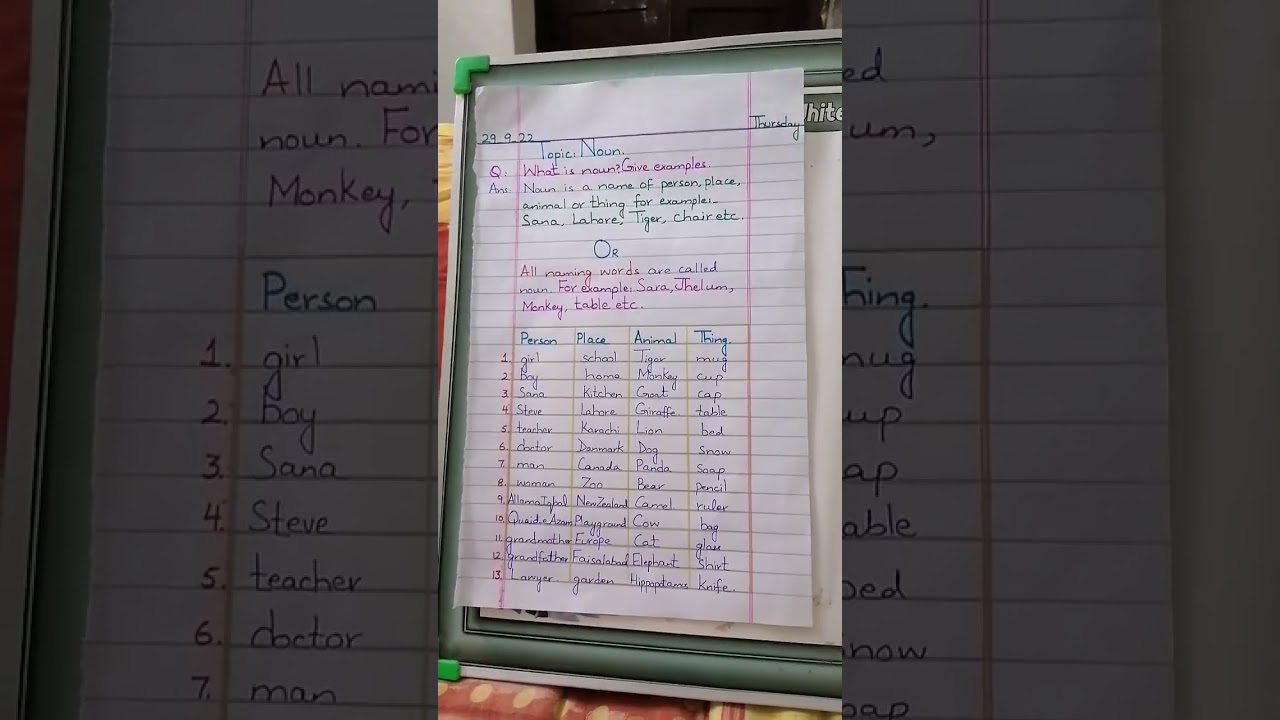 29.9.22 Thursday
Topic: Noun.
Q: What is noun? Give examples.
Ans: Noun is a name of person, place,
animal or thing for example:-
Sana, Lahore, Tiger, chair etc.
OR
All naming words are called
noun. For example: Sara, Jhelum,
Monkey, table etc.
Person Place Animal Thing.
1. girl school Tiger mug
2. Boy home Monkey cup
3. Sana Kitchen Goat cap
4. Steve Lahore Giraffe table
5. teacher Karachi Lion bed
6. doctor Danmark Dog snow
7. man Canada Panda soap
8. woman Zoo Bear pencil
9. Allama Iqbal New Zealand Camel ruler
10. Quaid-e-Azam Playground Cow bag
11. grandmother Europe Cat glass
12. grandfather Faisalabad Elephant Shirt
13. Lawyer garden Hippopotamas Knife.
White
All nami
noun. For
Monkey,
Person
1. girl
2. Boy
3. Sana
4. Steve
5. teacher
6. doctor
7. man
ed
um,
hing.
mug
up
ap
able
bed
now
oap